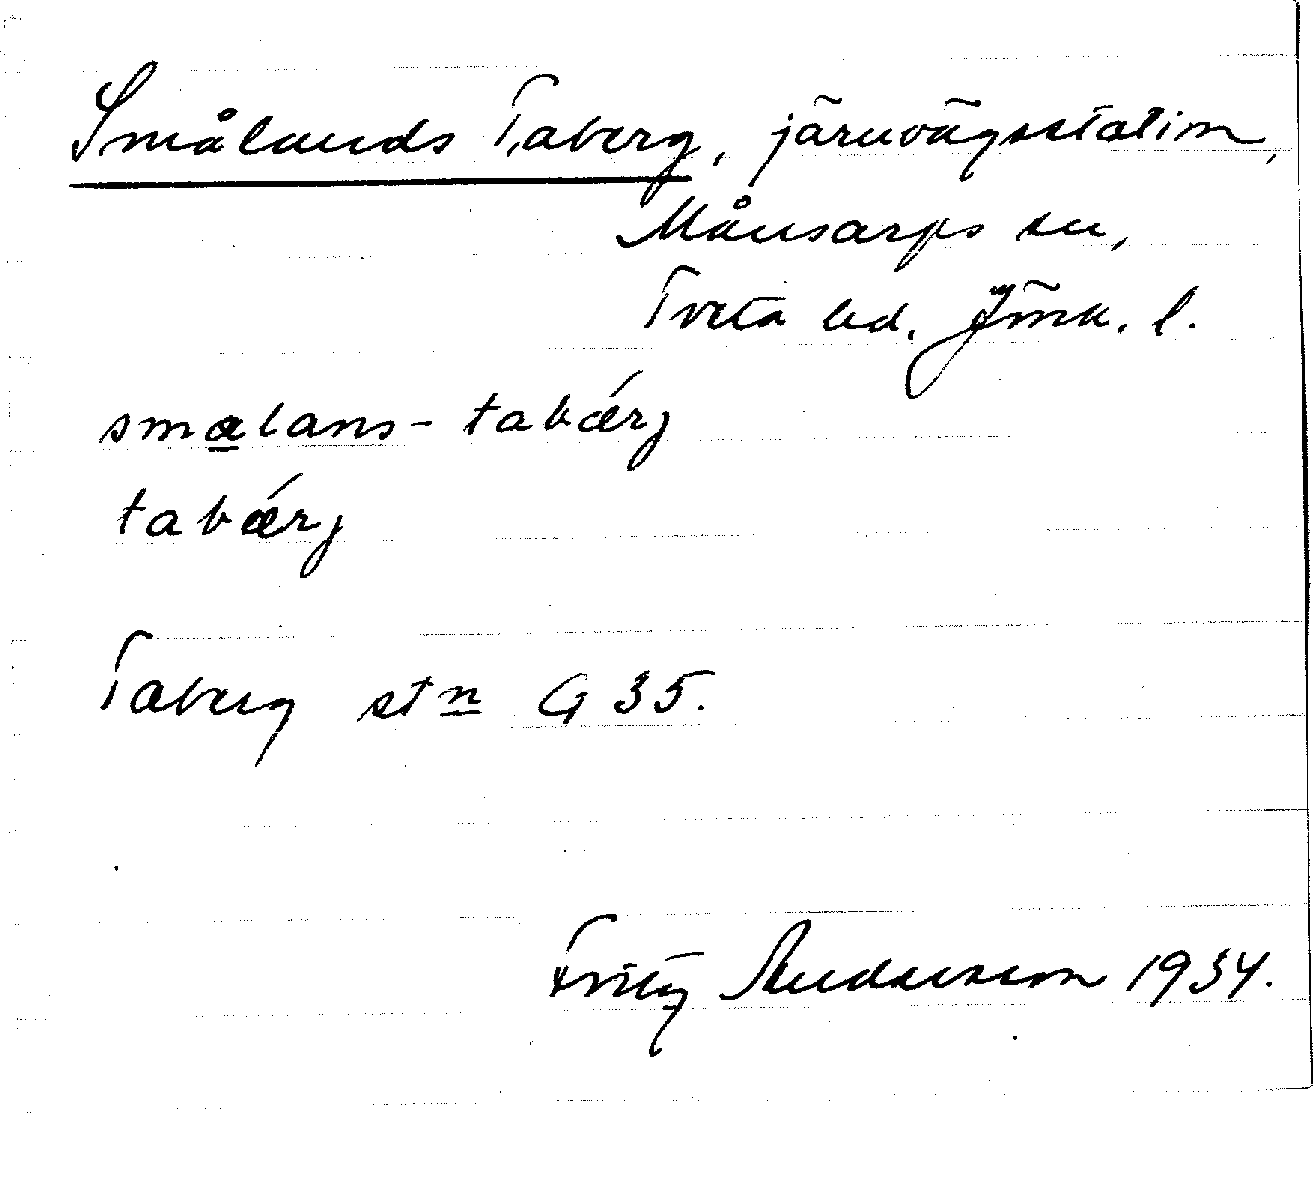 Smålands Taberg, järnvägsstation,
Månsarps sn,
Tveta hd. Jönk. l.
smålans-tabǽrj
tabǽrj
Taberg stn G 35.
Fritz Andersson 1934.